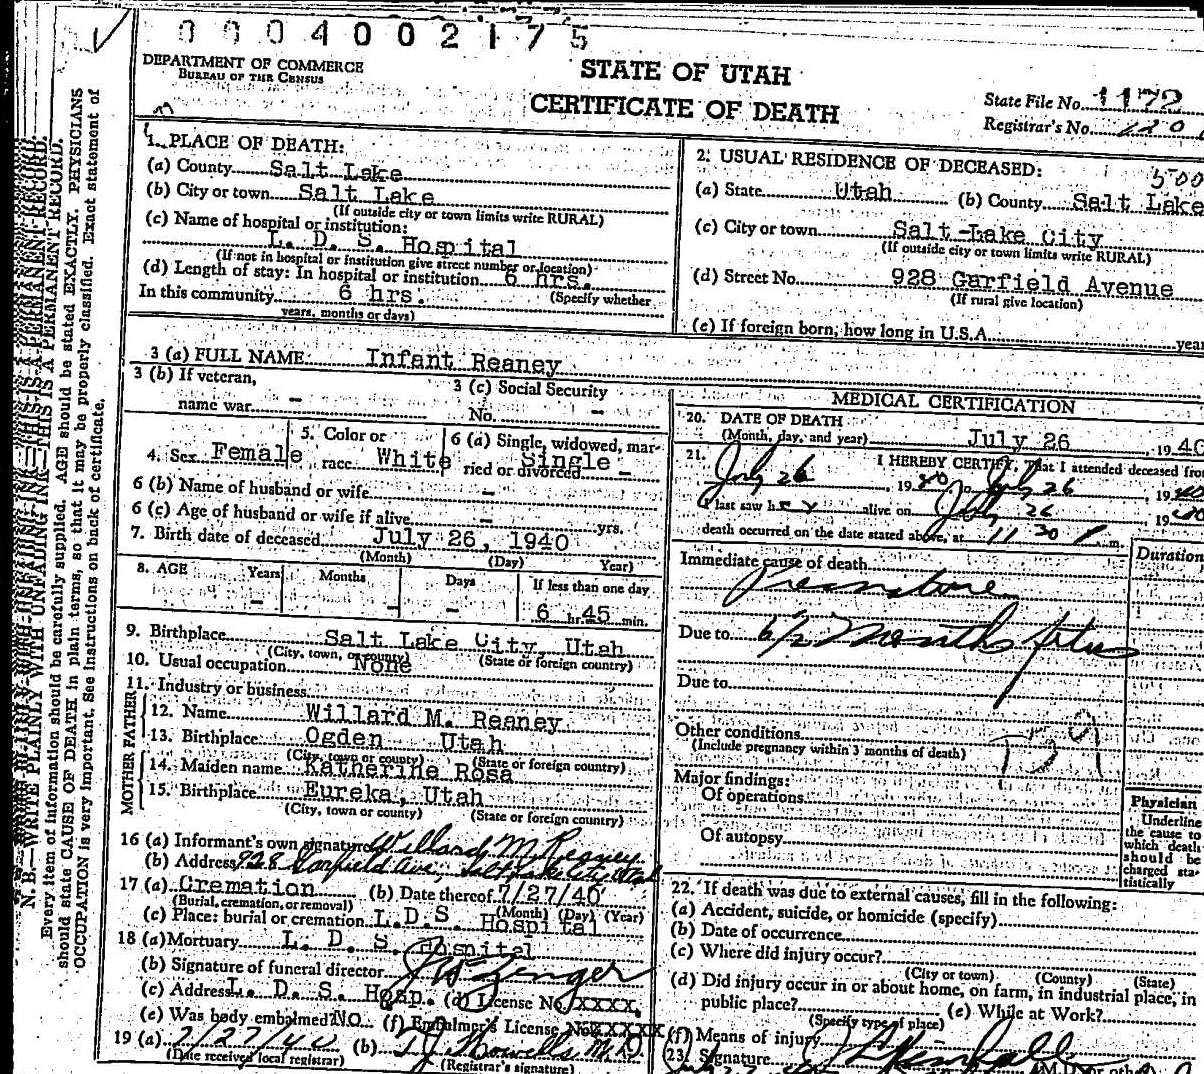 0004002175
DEPARTMENT OF COMMERCE
BUREAU OF THE CENSUS
STATE OF UTAH
CERTIFICATE OF DEATH
State File No. 1172
Registrar's No. 120
1. PLACE OF DEATH:
(a) County Salt Lake
(b) City or town Salt Lake
(If outside city or town limits write RURAL)
(c) Name of hospital or institution:
L. D. S. Hospital
(If not in hospital or institution give street number or location)
(d) Length of stay: In hospital or institution 6 hrs.
In this community 6 hrs. (Specify whether
years, months or days)
2. USUAL RESIDENCE OF DECEASED:
500
(a) State Utah (b) County Salt Lake
(c) City or town Salt Lake City
(If outside city or town limits write RURAL)
(d) Street No. 928 Garfield Avenue
(If rural give location)
(e) If foreign born, how long in U.S.A. year
3 (a) FULL NAME: Infant Reaney
3 (b) If veteran,
name war -
3 (c) Social Security
No. -
4. Sex Female
5. Color or
race White
6 (a) Single, widowed, mar-
ried or divorced Single
6 (b) Name of husband or wife -
6 (c) Age of husband or wife if alive - yrs.
7. Birth date of deceased July 26, 1940
(Month) (Day) Year)
8. AGE Years Months Days If less than one day
- - - 6 hr. 45 min.
9. Birthplace Salt Lake City, Utah
(City, town, or county) (State or foreign country)
10. Usual occupation None
11. Industry or business
FATHER
12. Name Willard M. Reaney
13. Birthplace Ogden Utah
(City, town or county) (State or foreign country)
MOTHER
14. Maiden name Katherine Rosa
15. Birthplace Eureka, Utah
(City, town or county) (State or foreign country)
16 (a) Informant's own signature Willard M Reaney
(b) Address 928 Garfield Ave, Salt Lake City, Utah
17 (a) Cremation (b) Date thereof 7/27/40
(Burial, cremation, or removal) (Month) (Day) (Year)
(c) Place: burial or cremation L.D.S. Hospital
18 (a) Mortuary L. D. S. Hospital
(b) Signature of funeral director
(c) Address L. D. S. Hosp. (d) License No. XXXX
(e) Was body embalmed? No (f) Embalmer's License No. XXXXX
19 (a) 7/27/40 (b) T J Howells M.D.
(Date received local registrar) (Registrar's signature)
MEDICAL CERTIFICATION
20. DATE OF DEATH
(Month, day, and year) July 26, 1940
21. I HEREBY CERTIFY, That I attended deceased from
July 26, 1940 to July 26, 19
I last saw her alive on July 26 1940
death occurred on the date stated above, at 11 30 P. m.
Duration
Immediate cause of death
Premature
Due to 6 1/2 months fetus
Due to
Other conditions
(Include pregnancy within 3 months of death)
159
Major findings:
Of operations
Of autopsy
Physician
Underline
the cause to
which death
should be
charged sta-
tistically
22. If death was due to external causes, fill in the following:
(a) Accident, suicide, or homicide (specify)
(b) Date of occurrence
(c) Where did injury occur?
(City or town) (County) (State)
(d) Did injury occur in or about home, on farm, in industrial place, in
public place? (e) While at Work?
(Specify type of place)
(f) Means of injury
23. Signature
(M.D. or other)
N. B.—WRITE PLAINLY WITH UNFADING INK—THIS IS A PERMANENT RECORD.
Every item of information should be carefully supplied. AGE should be stated EXACTLY. PHYSICIANS
should state CAUSE OF DEATH in plain terms, so that it may be properly classified. Exact statement of
OCCUPATION is very important. See instructions on back of certificate.